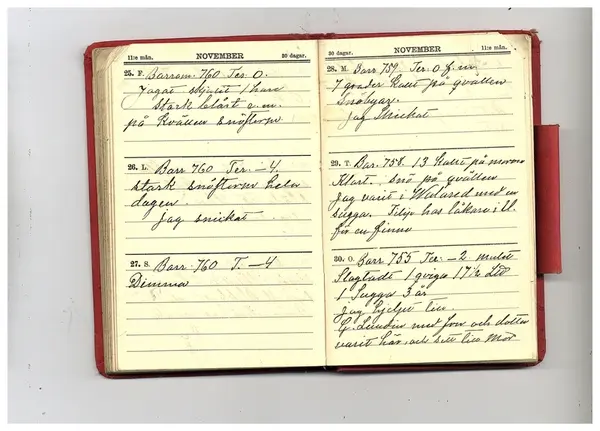 11:e mån. NOVEMBER 30 dagar.
25. F. Barom. 760 Ter. 0.
Jagat skjutit 1 hare
stark blåst e.m.
på kvällen snöstorm
26. L. Barr 760 Ter. —4.
stark snöstorm hela
dagen.
Jag snickat
27. S. Barr. 760 T. —4
Dimma
30 dagar. NOVEMBER 11:e mån.
28. M. Barr 759. Ter. 0 f.m.
7 grader kallt på qvällen
Snöbyar.
Jag Snickat
29. T. Bar. 758. 13 kallt på morgon
Klart. snö på qvällen
Jag varit i Walared med en
sugga. Tilja har läkare i U.
för en finne
30. O. Barr 755 Ter. —2 mulet
Slagtade 1 qviga 17½
1 Sugga 3 år
Jag hjelpt
G. Lundin med fru och dotter
varit här och sett Mor